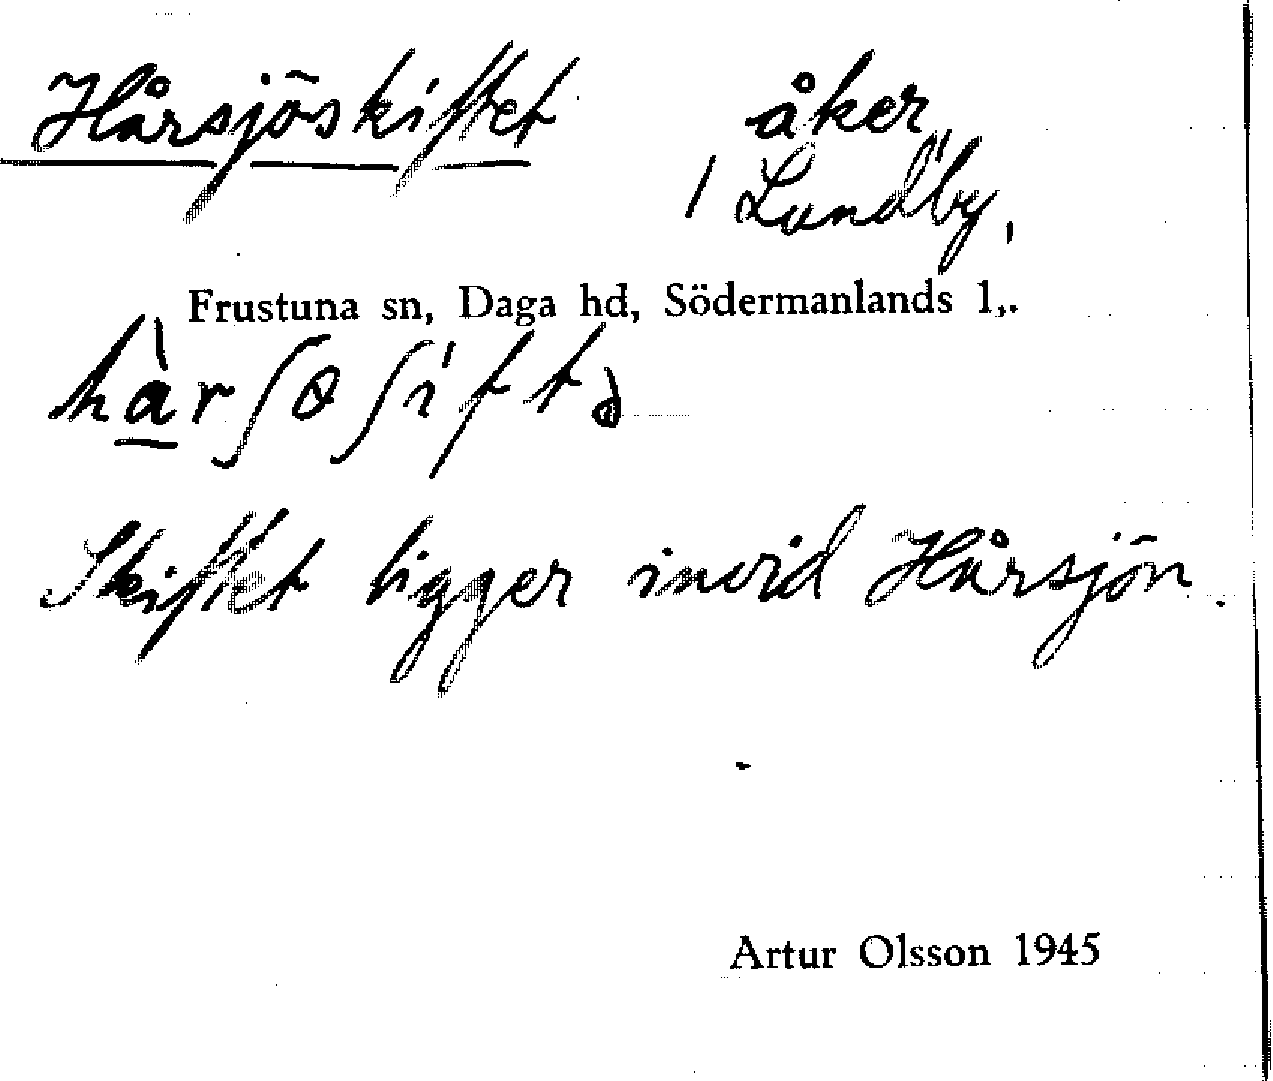 Hårsjöskiftet åker
i Lundby,
Frustuna sn, Daga hd, Södermanlands l.
Skiftet ligger invid Hårsjön.
Artur Olsson 1945